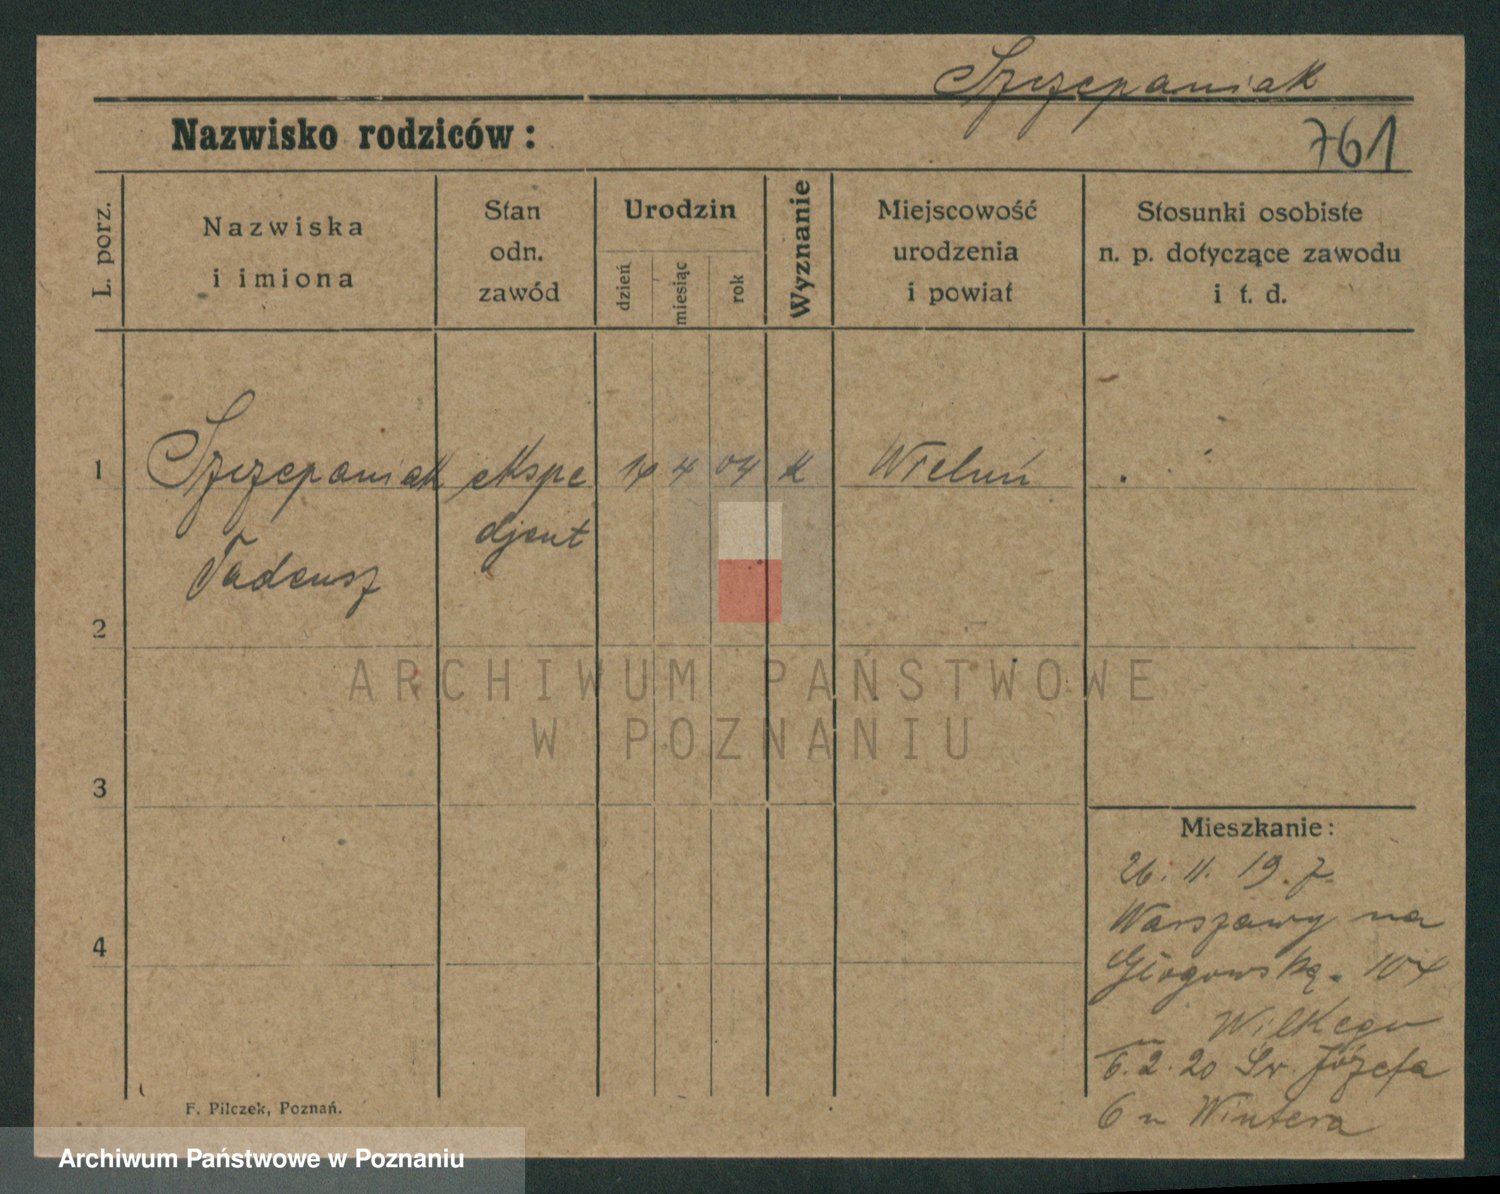 Szczepaniak
Nazwisko rodziców:
761
L. porz.
Nazwiska
i imiona
Stan
odn.
zawód
Urodzin
dzień
miesiąc
rok
Wyznanie
Miejscowość
urodzenia
i powiat
Stosunki osobiste
n. p. dotyczące zawodu
i t. d.
1 Szczepaniak ekspe 14 4 04 k Wieluń
djent
Tadeusz
2
3
4
ARCHIWUM PAŃSTWOWE
W POZNANIU
Mieszkanie:
26. 11. 19. z
Warszawy na
Głogowską. 104
Wilkego
6. 2. 20 Św. Józefa
6 u Wintera
F. Pilczek, Poznań.
Archiwum Państwowe w Poznaniu